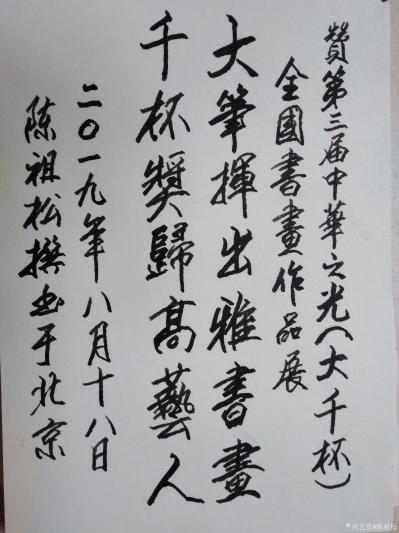 贊第三届中華之光(大千杯)
全國書畫作品展
大筆揮出雅書畫
千杯獎歸高藝人
二〇一九年八月十八日
陈祖松撰书于北京